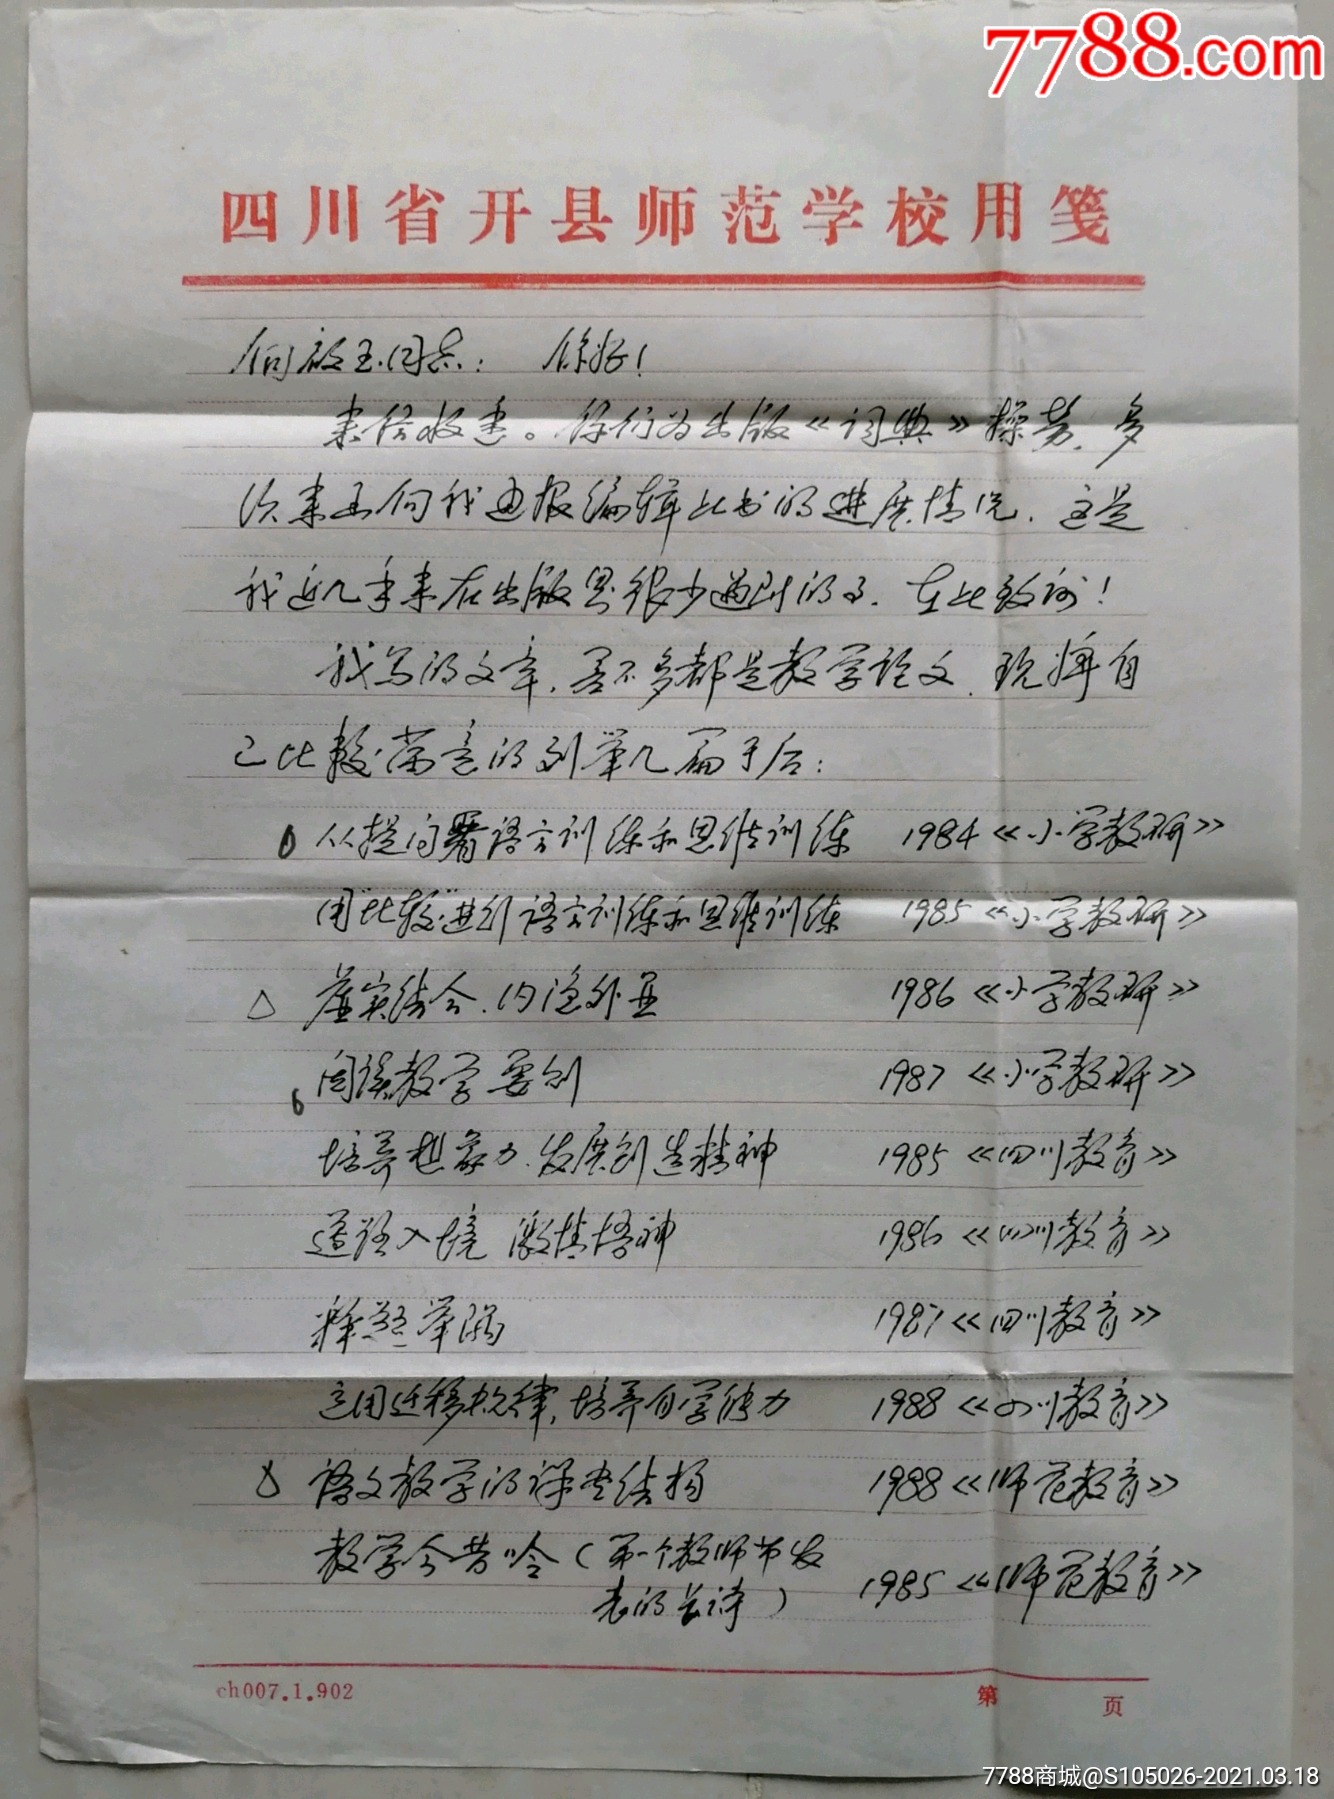 7788.com
四川省开县师范学校用笺
同志: 你好!
来信收悉。你们为出版《词典》操劳,多
次来函向我通报编辑此书的进展情况,这是
我近几年来在出版界很少遇到的事,在此致谢!
我写的文章,差不多都是教学论文,现将自
己比较满意的列举几篇于后:
从提问看语言训练和思维训练 1984《小学教研》
用"比较"进行语言训练和思维训练 1985《小学教研》
△ 虚实结合,内 外 1986《小学教研》
阅读教学要创 1987《小学教研》
培养想象力,发展创造精神 1985《四川教育》
道路入境 激情悟神 1986《四川教育》
释题举隅 1987《四川教育》
运用迁移规律,培养自学能力 1988《四川教育》
语文教学的课堂结构 1988《师范教育》
教学今昔吟(第一个教师节发
表的长诗) 1985《师范教育》
ch007.1.902 第 页
7788商城@S105026-2021.03.18